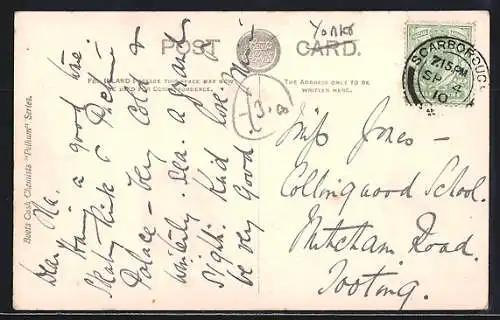 Yorks
POST CARD.
FOR INLAND POSTAGE THIS SPACE MAY NOW
BE USED FOR CORRESPONDENCE.
THE ADDRESS ONLY TO BE
WRITTEN HERE.
SCARBOROUGH
7.15 PM
SP 4
10
Boots Cash Chemists "Pelham" Series.
Dear
a good time
Skating Rink &
Palace - Very Cold &
Sea. a grand
sight. Kind love
be very Good
Miss Jones -
Collingwood School.
Mitcham Road.
Tooting.